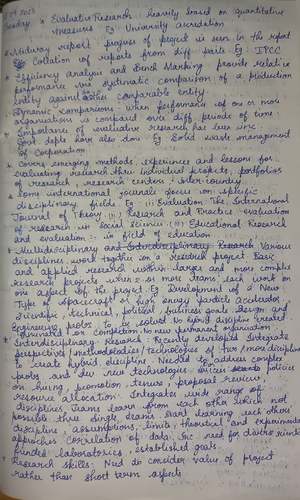 2023
Tuesday * Evaluative Research : heavily based on quantitative
measures Eg University accredation
* Midway report progress of project is seen in the report
Collation of reports from diff parts Eg IPCC
* Efficiency analysis and Bench Marking provide relative
performance via systematic comparison of a production
entity against other comparable entity
* Dynamic comparisons when performance of one or more
organisations is compared over diff periods of time
* Importance of evaluative research has been inc
Govt depts have also done Eg Solid waste management
of Corporation
* Covers emerging methods, experiences and lessons for
evaluating research thru individual projects, portfolios
of research, research centers, inter-country
Some international journals focus on specific
disciplinary fields Eg (i) Evaluation: The International
Journal of Theory, (ii) Research and Practice - evaluation
of research in Social science (iii) Educational Research
and evaluation - in field of Education
* Multidisciplinary Research Various
disciplines work together on a research project Basic
and applied research within larger and more complex
Research projects when 2 or more teams each work on
one aspect of the project Eg Development of a New
Type of spacecraft or high energy particle accelerator
scientific, technical, political, business goals. Design and
Engineering probs to be solved No hybrid discipline created
Terminated on completion No new permanent organisation
* Interdisciplinary Research Recently developed Integrate
perspectives/methodologies/technologies of two/more disciplines
to create hybrid discipline Needed to address complex
probs and dev new technologies policies
on hiring, promotion, tenure, proposal review,
resource allocation. Integrates wide range of
disciplines, Teams learn from each other which not
possible thru single Teams start learning each others
discipline, assumptions, limits, theoretical and experimental
approaches correlation of data. Inc need for
funded laboratories, established goals.
* Research skills: Need to consider value of project
rather than short term aspects